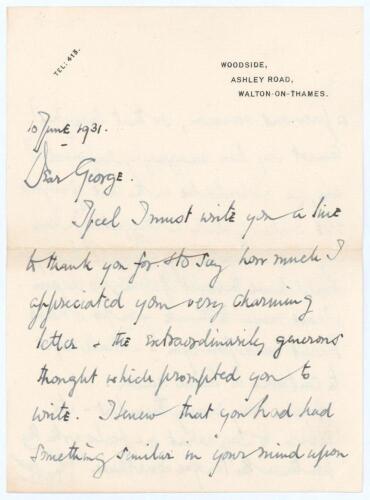 TEL: 413.
WOODSIDE,
ASHLEY ROAD,
WALTON-ON-THAMES.
10 June 1931.
Dear George.
I feel I must write you a line
to thank you for & to say how much I
appreciated your very charming
letter & the extraordinarily generous
thought which prompted you to
write. I knew that you had had
something similar in your mind upon